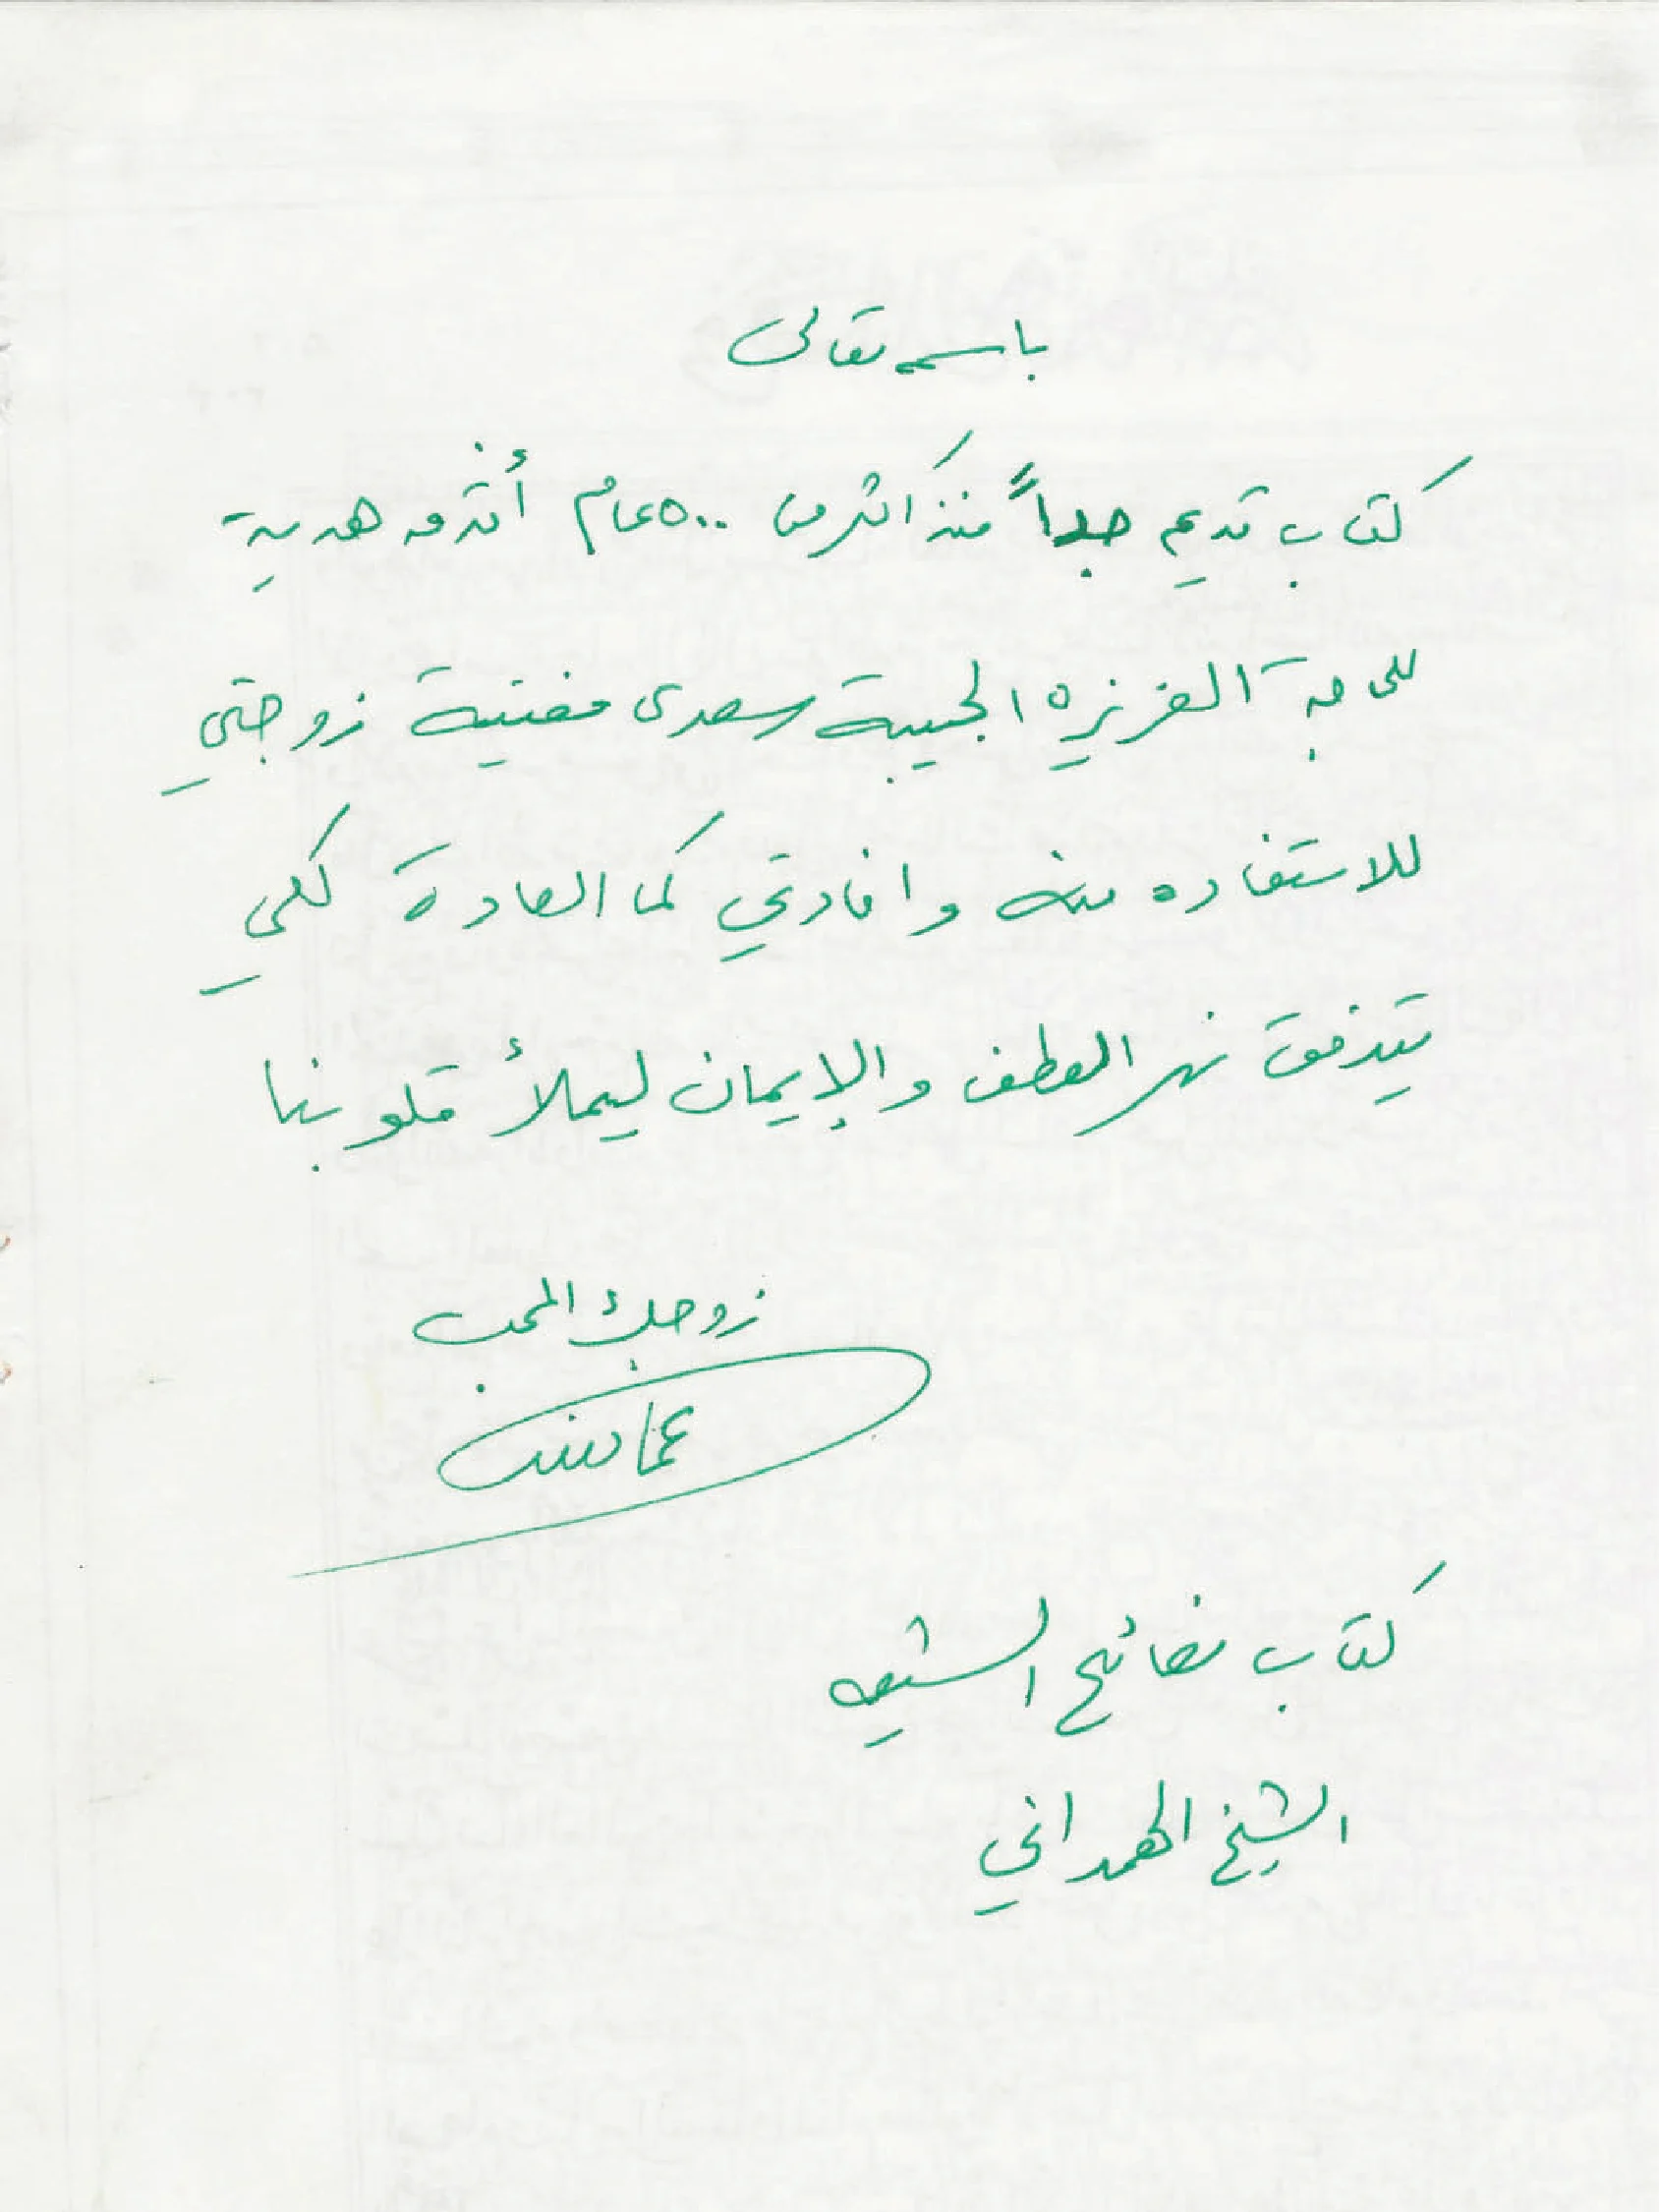 باسمه تعالى
كتاب قديم جداً منذ اكثر من ٥٠٠ عام أقدمه هدية
للحاجة العزيزه الحبيبة سعدى مغنية زوجتي
للاستفاده منه وافادتي كما العادة لكي
يتدفق نهر العطف والإيمان ليملأ قلوبنا
زوجك المحب
كتاب نصائح الشيعه
الشيخ الهمداني